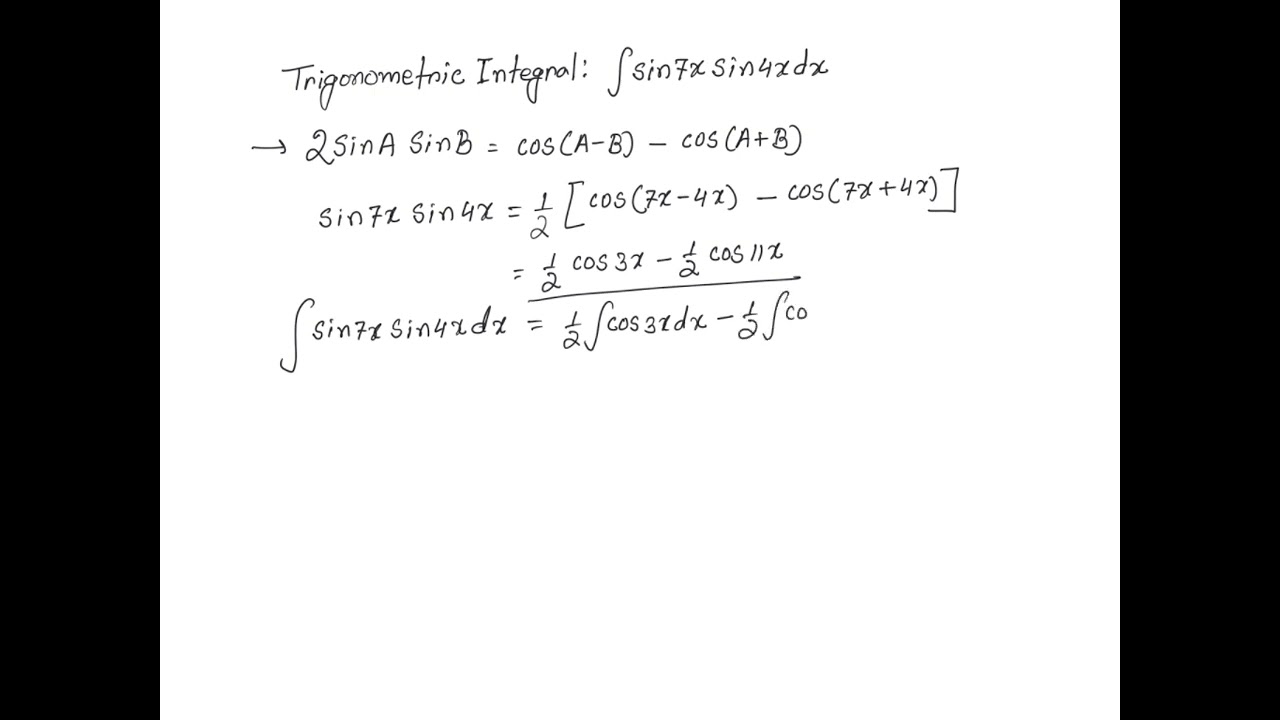 Trigonometric Integral: ∫sin7x sin4x dx
→ 2 sinA sinB = cos(A-B) - cos(A+B)
sin7x sin4x = 1/2 [cos(7x-4x) - cos(7x+4x)]
= 1/2 cos3x - 1/2 cos11x
∫sin7x sin4x dx = 1/2 ∫cos3x dx - 1/2 ∫co